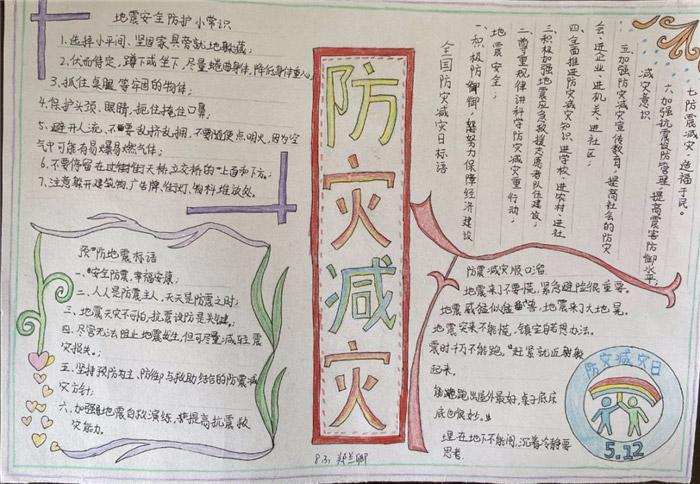 地震安全防护小常识
1.选择小平间、坚固家具旁就地躲藏;
2、伏而待定,蹲下或坐下,尽量蜷曲身体,降低身体重心
3、抓住桌腿等牢固的物体;
4.保护头颈、眼睛,掩住口鼻;
5、避开人流,不要乱挤乱拥,不要随便点明火,因为空
气中可能有易爆易燃气体;
6、不要停留在过街天桥、立交桥的上面和下方;
7、注意躲开建筑物,广告牌,街灯,物料堆放处。
预防地震标语
一、安全防震,幸福安康;
二、人人是防震主人,天天是防震之时;
三、地震天灾不可怕,抗震设防是关键;
四、尽管无法阻止地震发生,但可尽量减轻震
灾损失。;
五、坚持预防为主、防御与救助结合的防震减
灾方针;
六、加强地震自救演练,提高抗震救
灾能力。
防灾减灾
全国防灾减灾日标语
一、积极防御,努力保障经济建设
地震安全;
二、尊重规律讲科学防灾减灾重行动;
三、积极加强地震应急救援志愿者队伍建设;
四、全面推进防灾减灾知识进学校、进农村、进社
会、进企业、进机关、进社区;
五、加强防灾减灾宣传教育,提高社会的防灾
减灾意识
六、加强抗震设防管理,提高震害防御水平;
七、防震减灾,造福于民。
防震减灾顺口溜
地震来了不要慌,紧急避险很重要。
地震威猛似猛兽,地震来了大地晃。
地震突来不能慌,镇定自若用办法。
震时千万不能跑,赶紧就近躲
起来。
跑出屋外最好,桌子底床
底也很好。
埋在地下不能闹,沉着冷静要
思考.
防灾减灾日
5.12